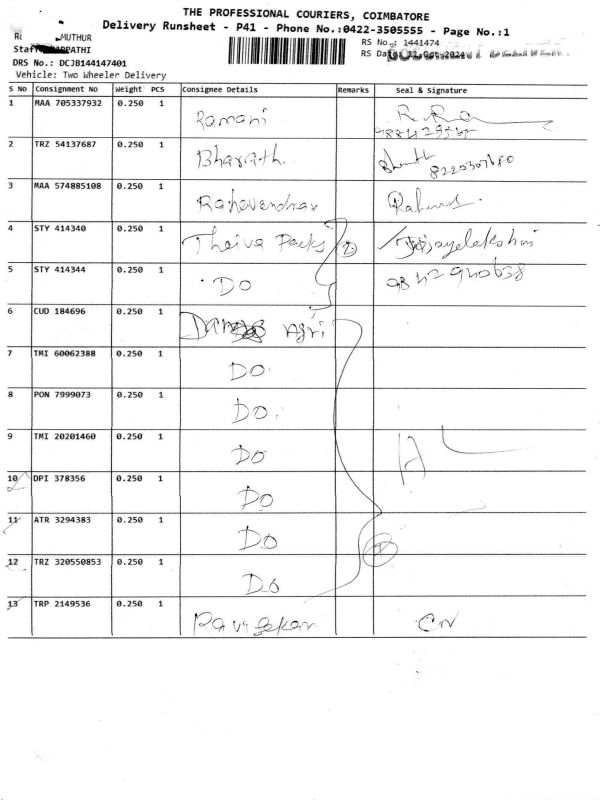 THE PROFESSIONAL COURIERS, COIMBATORE
Delivery Runsheet - P41 - Phone No.:0422-3505555 - Page No.:1
MUTHUR
RS No.: 1441474
Staff PATHI
RS Date: Oct-2024
DRS No.: DCJB144147401
Vehicle: Two Wheeler Delivery
S No Consignment No Weight PCS Consignee Details Remarks Seal & Signature
1 MAA 705337932 0.250 1 Ramani
2 TRZ 54137687 0.250 1 Bharath.
3 MAA 574885108 0.250 1 Raghavendran
4 STY 414340 0.250 1 Theiva Packs 2 Jayalakshmi
5 STY 414344 0.250 1 DO 9842940638
6 CUD 184696 0.250 1 Agri
7 TMI 60062388 0.250 1 DO
8 PON 7999073 0.250 1 DO
9 TMI 20201460 0.250 1 DO
10 DPI 378356 0.250 1 DO
11 ATR 3294383 0.250 1 DO
12 TRZ 320550853 0.250 1 DO
13 TRP 2149536 0.250 1 Ravisekar